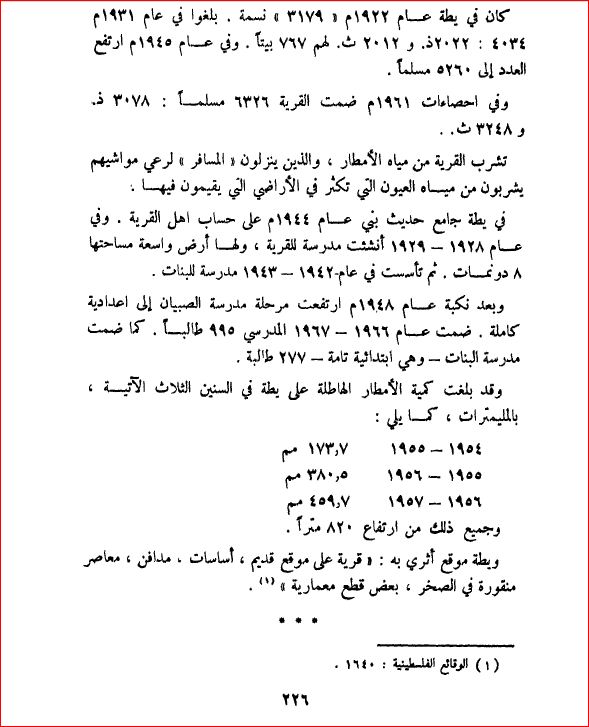 كان في يطة عـــام ١٩٢٢م « ٣١٧٩ » نسمة . بلغوا في عام ١٩٣١م
٤٠٣٤ : ٢٠٢٢ذ. و ٢٠١٢ ث. لهم ٧٦٧ بيتاً . وفي عـــام ١٩٤٥م ارتفع
العدد إلى ٥٢٦٠ مسلماً .
وفي احصاءات ١٩٦١م ضمت القرية ٦٣٢٦ مسلمـــاً : ٣٠٧٨ ذ.
و ٣٢٤٨ ث. .
تشرب القرية من مياه الأمطار ، والذين ينزلون « المسافر » لرعي مواشيهم
يشربون من ميـــاه العيون التي تكثر في الأراضي التي يقيمون فيهـــا .
في يطة جامع حديث بُني عـــام ١٩٤٤م على حساب اهل القرية . وفي
عـــام ١٩٢٨ – ١٩٢٩ أنشئت مدرسة للقرية ، ولهـــا أرض واسعة مساحتها
٨ دونمـــات . ثم تأسست في عام-١٩٤٢ – ١٩٤٣ مدرسة للبنات .
وبعد نكبة عـــام ١٩٤٨م ارتفعت مرحلة مدرسة الصبيان إلى اعدادية
كاملة . ضمت عـــام ١٩٦٦ – ١٩٦٧ المدرسي ٩٩٥ طالبـــاً . كما ضمت
مدرسة البنات – وهي ابتدائية تامة – ٢٧٧ طالبة .
وقد بلغت كمية الأمطار الهاطلة على يطة في السنين الثلاث الآتيـــة ،
بالمليمترات ، كمـــا يلي :
١٩٥٤ – ١٩٥٥ ١٧٣,٧ مم
١٩٥٥ – ١٩٥٦ ٣٨٠,٥ مم
١٩٥٦ – ١٩٥٧ ٤٥٩,٧ مم
وجميع ذلك من ارتفاع ٨٢٠ متراً .
ويطة موقع أثري به : « قرية على موقع قديم ، أساسات . مدافن ، معاصر
منقورة في الصخر ، بعض قطع معمارية » (١) .
* * *
(١) الوقائع الفلسطينية : ١٦٤٠ .
٢٢٦